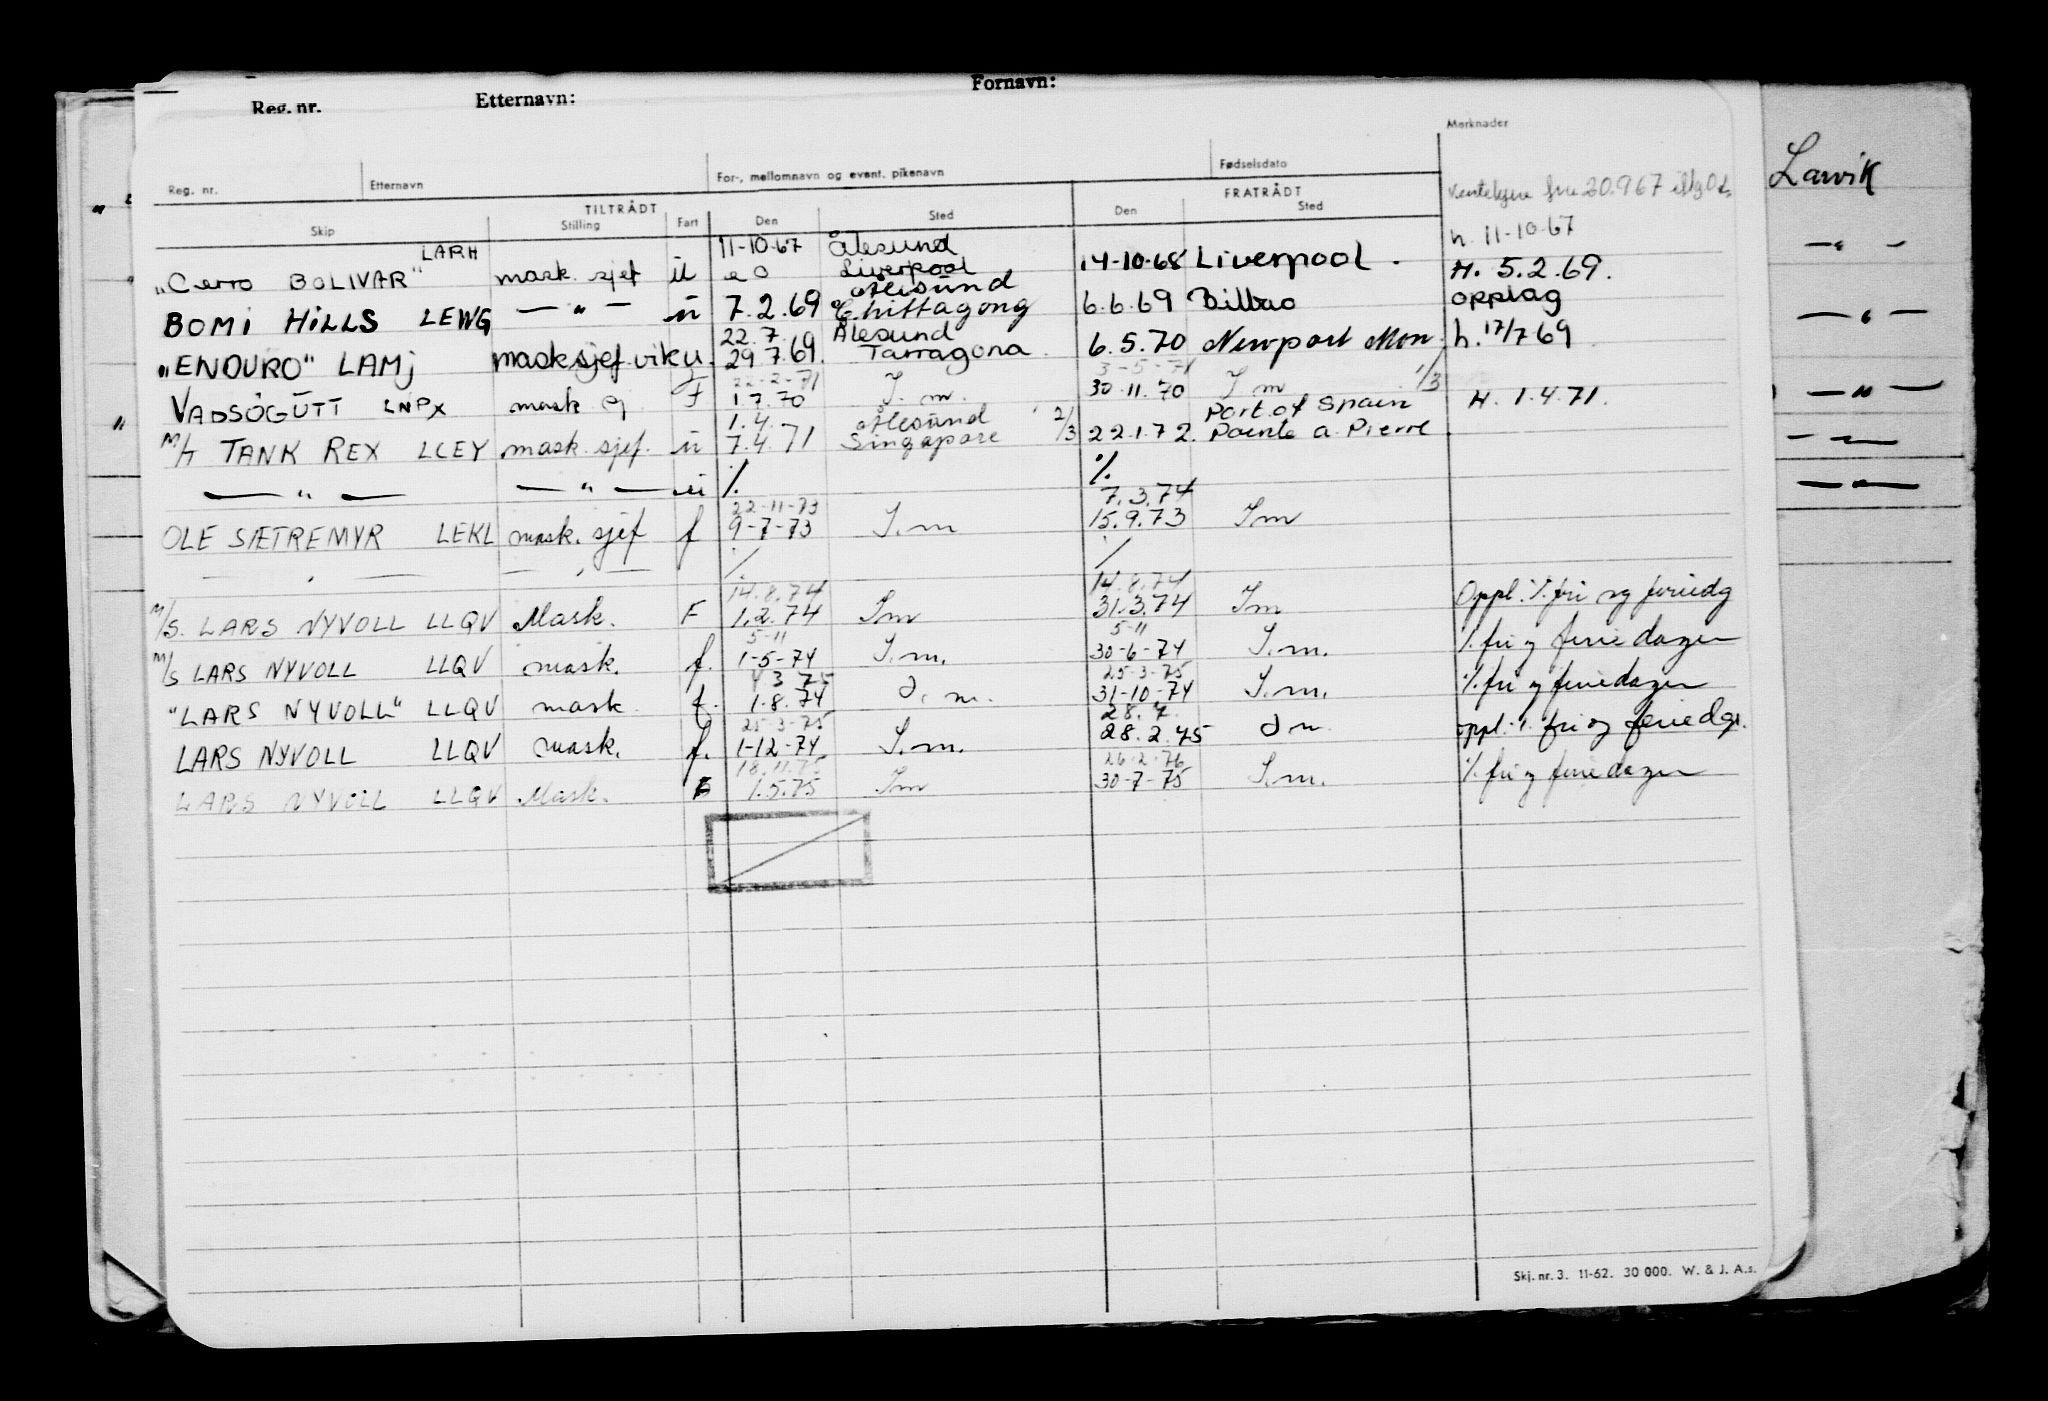 Reg. nr. Etternavn: Fornavn:
Merknader
Reg. nr. Etternavn For-, mellomnavn og event. pikenavn Fødselsdato
Larvik
TILTRÅDT FRATRÅDT
Skip Stilling Fart Den Sted Den Sted
20.9 67
LARH 11-10-67 Ålesund h. 11-10-67
"Cerro BOLIVAR" mask. sjef u Liverpool 14-10-68 Liverpool. H. 5.2.69.
Ålesund
BOMI HILLS LEWG — " — u 7.2.69 Chittagong 6.6.69 Bilbao opplag
22.7. Ålesund
"ENDURO" LAMJ mask sjef vik u. 29 7.69. Tarragona. 6.5.70 Newport Mon. h. 17/7 69
22-2-71 3-5-71
VADSÖGUTT LNPX mask F 1 7.70 I. m. 30.11.70 I m 1/3 H. 1.4.71.
1.4. Ålesund 2/3 Port of Spain
M/T TANK REX LCEY mask. sjef. u 7.4.71 Singapore 22.1.72. Pointe a. Pierre.
— " — — " — u % %
22-11-73 7.3.74
OLE SÆTREMYR LEKL mask. sjef f 9-7-73 I. m 15.9.73 I m
14.8.74 14.8.74
M/S. LARS NYVOLL LLQV Mask. F 1.2.74 I m 31.3.74 I m Oppl. % fri og feriedg
5-11 5-11
M/S LARS NYVOLL LLQV mask. f. 1-5-74 I. m. 30-6-74 I. m. % fri og feriedager
4 3 75 25-3-75
"LARS NYVOLL" LLQV mask. f. 1.8.74 I. m. 31-10-74 I. m. % fri og feriedager
25-3-75 28.7.
LARS NYVOLL LLQV mask. f. 1-12-74 I. m. 28.2.75 I m oppl. % fri og feriedgr.
18.11.75 26.2.76
LARS NYVOLL LLQV Mask. F 1.5.75 I m 30-7-75 I. m. % fri og feriedager
Skj. nr. 3. 11-62. 30 000. W. & J. A.s.